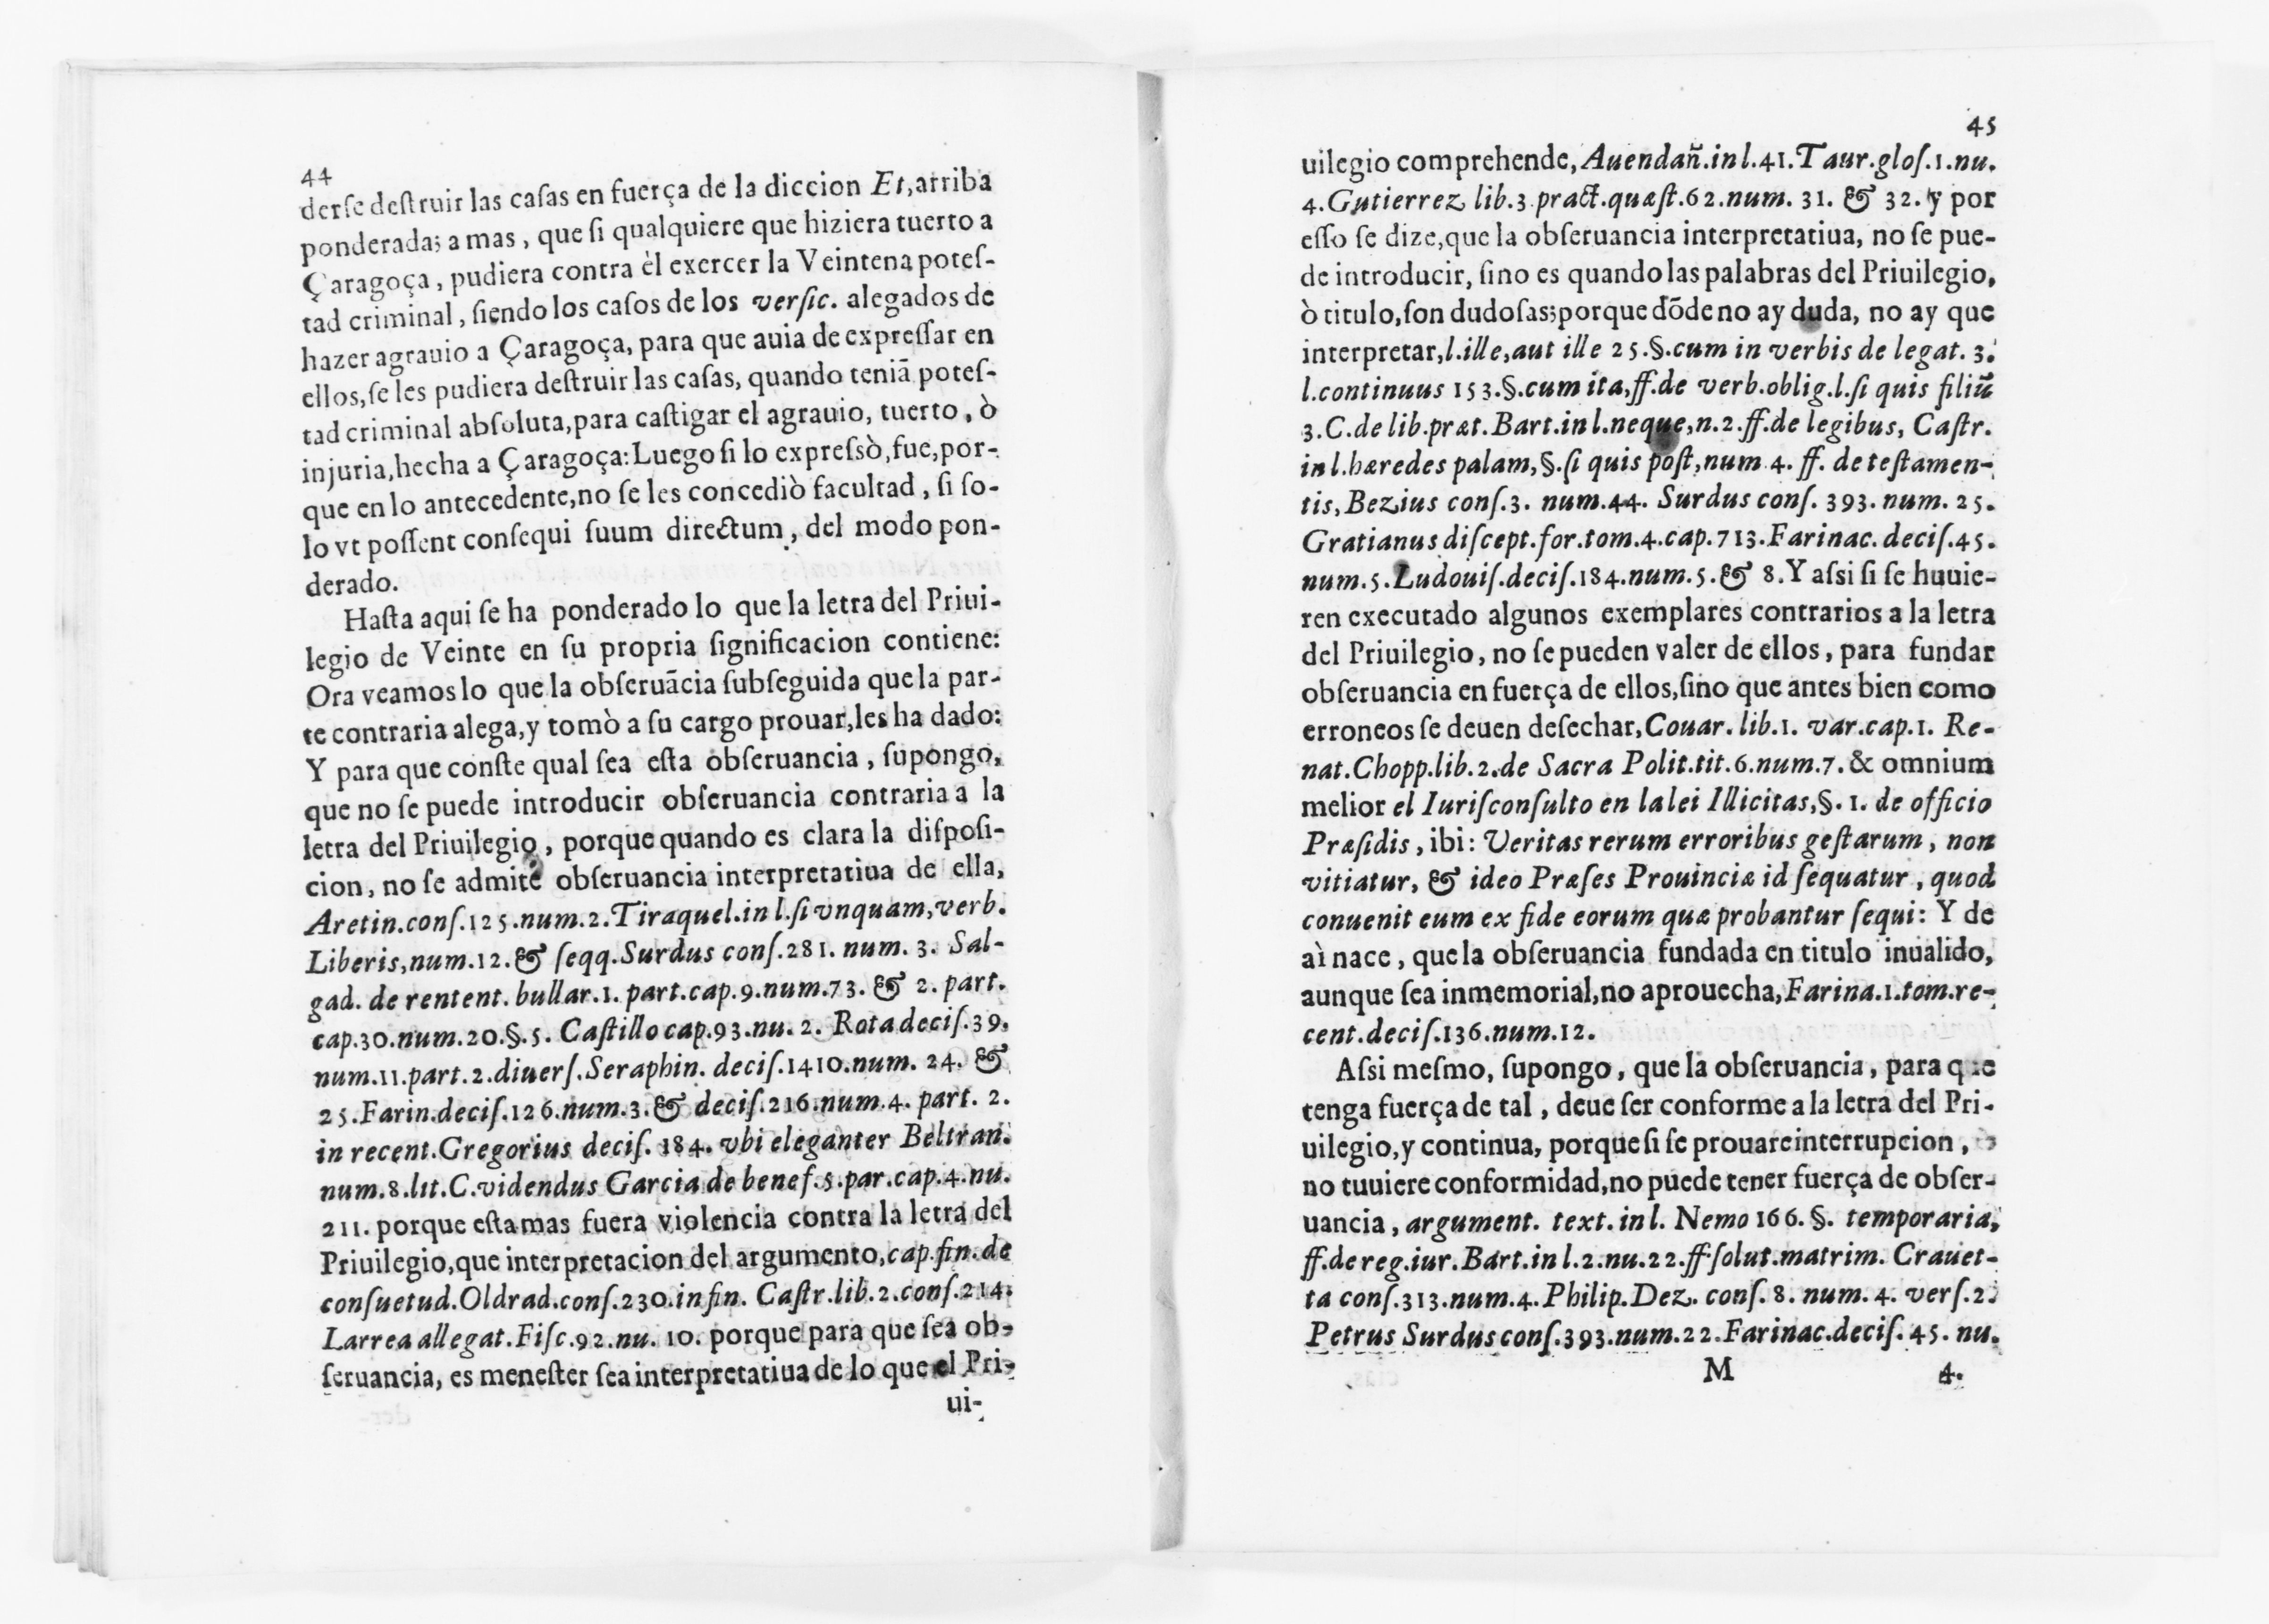 44
derſe deſtruir las caſas en fuerça de la diccion Et, arriba
ponderada; a mas, que ſi qualquiere que hiziera tuerto a
Çaragoça, pudiera contra èl exercer la Veintena poteſ-
tad criminal, ſiendo los caſos de los verſic. alegados de
hazer agrauio a Çaragoça, para que auia de expreſſar en
ellos, ſe les pudiera deſtruir las caſas, quando teniā poteſ-
tad criminal abſoluta, para caſtigar el agrauio, tuerto, ò
injuria, hecha a Çaragoça: Luego ſi lo expreſsò, fue, por-
que en lo antecedente, no ſe les concediò facultad, ſi ſo-
lo vt poſſent conſequi ſuum directum, del modo pon-
derado.
Haſta aqui ſe ha ponderado lo que la letra del Priui-
legio de Veinte en ſu propria ſignificacion contiene:
Ora veamos lo que la obſeruācia ſubſeguida que la par-
te contraria alega, y tomò a ſu cargo prouar, les ha dado:
Y para que conſte qual ſea eſta obſeruancia, ſupongo,
que no ſe puede introducir obſeruancia contraria a la
letra del Priuilegio, porque quando es clara la diſpoſi-
cion, no ſe admite obſeruancia interpretatiua de ella,
Aretin. conſ. 125. num. 2. Tiraquel. in l. ſi vnquam, verb.
Liberis, num. 12. & ſeqq. Surdus conſ. 281. num. 3. Sal-
gad. de rentent. bullar. 1. part. cap. 9. num. 73. & 2. part.
cap. 30. num. 20. §. 5. Caſtillo cap. 93. nu. 2. Rota deciſ. 39.
num. 11. part. 2. diuerſ. Seraphin. deciſ. 1410. num. 24. &
25. Farin. deciſ. 126. num. 3. & deciſ. 216. num. 4. part. 2.
in recent. Gregorius deciſ. 184. vbi eleganter Beltran.
num. 8. lit. C. videndus Garcia de benef. 5. par. cap. 4. nu.
211. porque eſta mas fuera violencia contra la letra del
Priuilegio, que interpretacion del argumento, cap. fin. de
conſuetud. Oldrad. conſ. 230. in fin. Caſtr. lib. 2. conſ. 214.
Larrea allegat. Fiſc. 92. nu. 10. porque para que ſea ob-
ſeruancia, es meneſter ſea interpretatiua de lo que el Pri-
ui-
45
uilegio comprehende, Auendañ. in l. 41. Taur. gloſ. 1. nu.
4. Gutierrez lib. 3 pract. quæſt. 62. num. 31. & 32. y por
eſſo ſe dize, que la obſeruancia interpretatiua, no ſe pue-
de introducir, ſino es quando las palabras del Priuilegio,
ò titulo, ſon dudoſas; porque dōde no ay duda, no ay que
interpretar, l. ille, aut ille 25. §. cum in verbis de legat. 3.
l. continuus 153. §. cum ita, ff. de verb. oblig. l. ſi quis filiū
3. C. de lib. præt. Bart. in l. neque, n. 2. ff. de legibus, Caſtr.
in l. hæredes palam, §. ſi quis poſt, num 4. ff. de teſtamen-
tis, Bezius conſ. 3. num. 44. Surdus conſ. 393. num. 25.
Gratianus diſcept. for. tom. 4. cap. 713. Farinac. deciſ. 45.
num. 5. Ludouiſ. deciſ. 184. num. 5. & 8. Y aſsi ſi ſe huuie-
ren executado algunos exemplares contrarios a la letra
del Priuilegio, no ſe pueden valer de ellos, para fundar
obſeruancia en fuerça de ellos, ſino que antes bien como
erroneos ſe deuen deſechar, Couar. lib. 1. var. cap. 1. Re-
nat. Chopp. lib. 2. de Sacra Polit. tit. 6. num. 7. & omnium
melior el Iuriſconſulto en la lei Illicitas, §. 1. de officio
Præſidis, ibi: Veritas rerum erroribus geſtarum, non
vitiatur, & ideo Præſes Prouinciæ id ſequatur, quod
conuenit eum ex fide eorum quæ probantur ſequi: Y de
aì nace, que la obſeruancia fundada en titulo inualido,
aunque ſea inmemorial, no aprouecha, Farina. 1. tom. re-
cent. deciſ. 136. num. 12.
Aſsi meſmo, ſupongo, que la obſeruancia, para que
tenga fuerça de tal, deue ſer conforme a la letra del Pri-
uilegio, y continua, porque ſi ſe prouare interrupcion,
no tuuiere conformidad, no puede tener fuerça de obſer-
uancia, argument. text. in l. Nemo 166. §. temporaria,
ff. de reg. iur. Bart. in l. 2. nu. 22. ff. ſolut. matrim. Crauet-
ta conſ. 313. num. 4. Philip. Dez. conſ. 8. num. 4. verſ. 2.
Petrus Surdus conſ. 393. num. 22. Farinac. deciſ. 45. nu.
M 4.